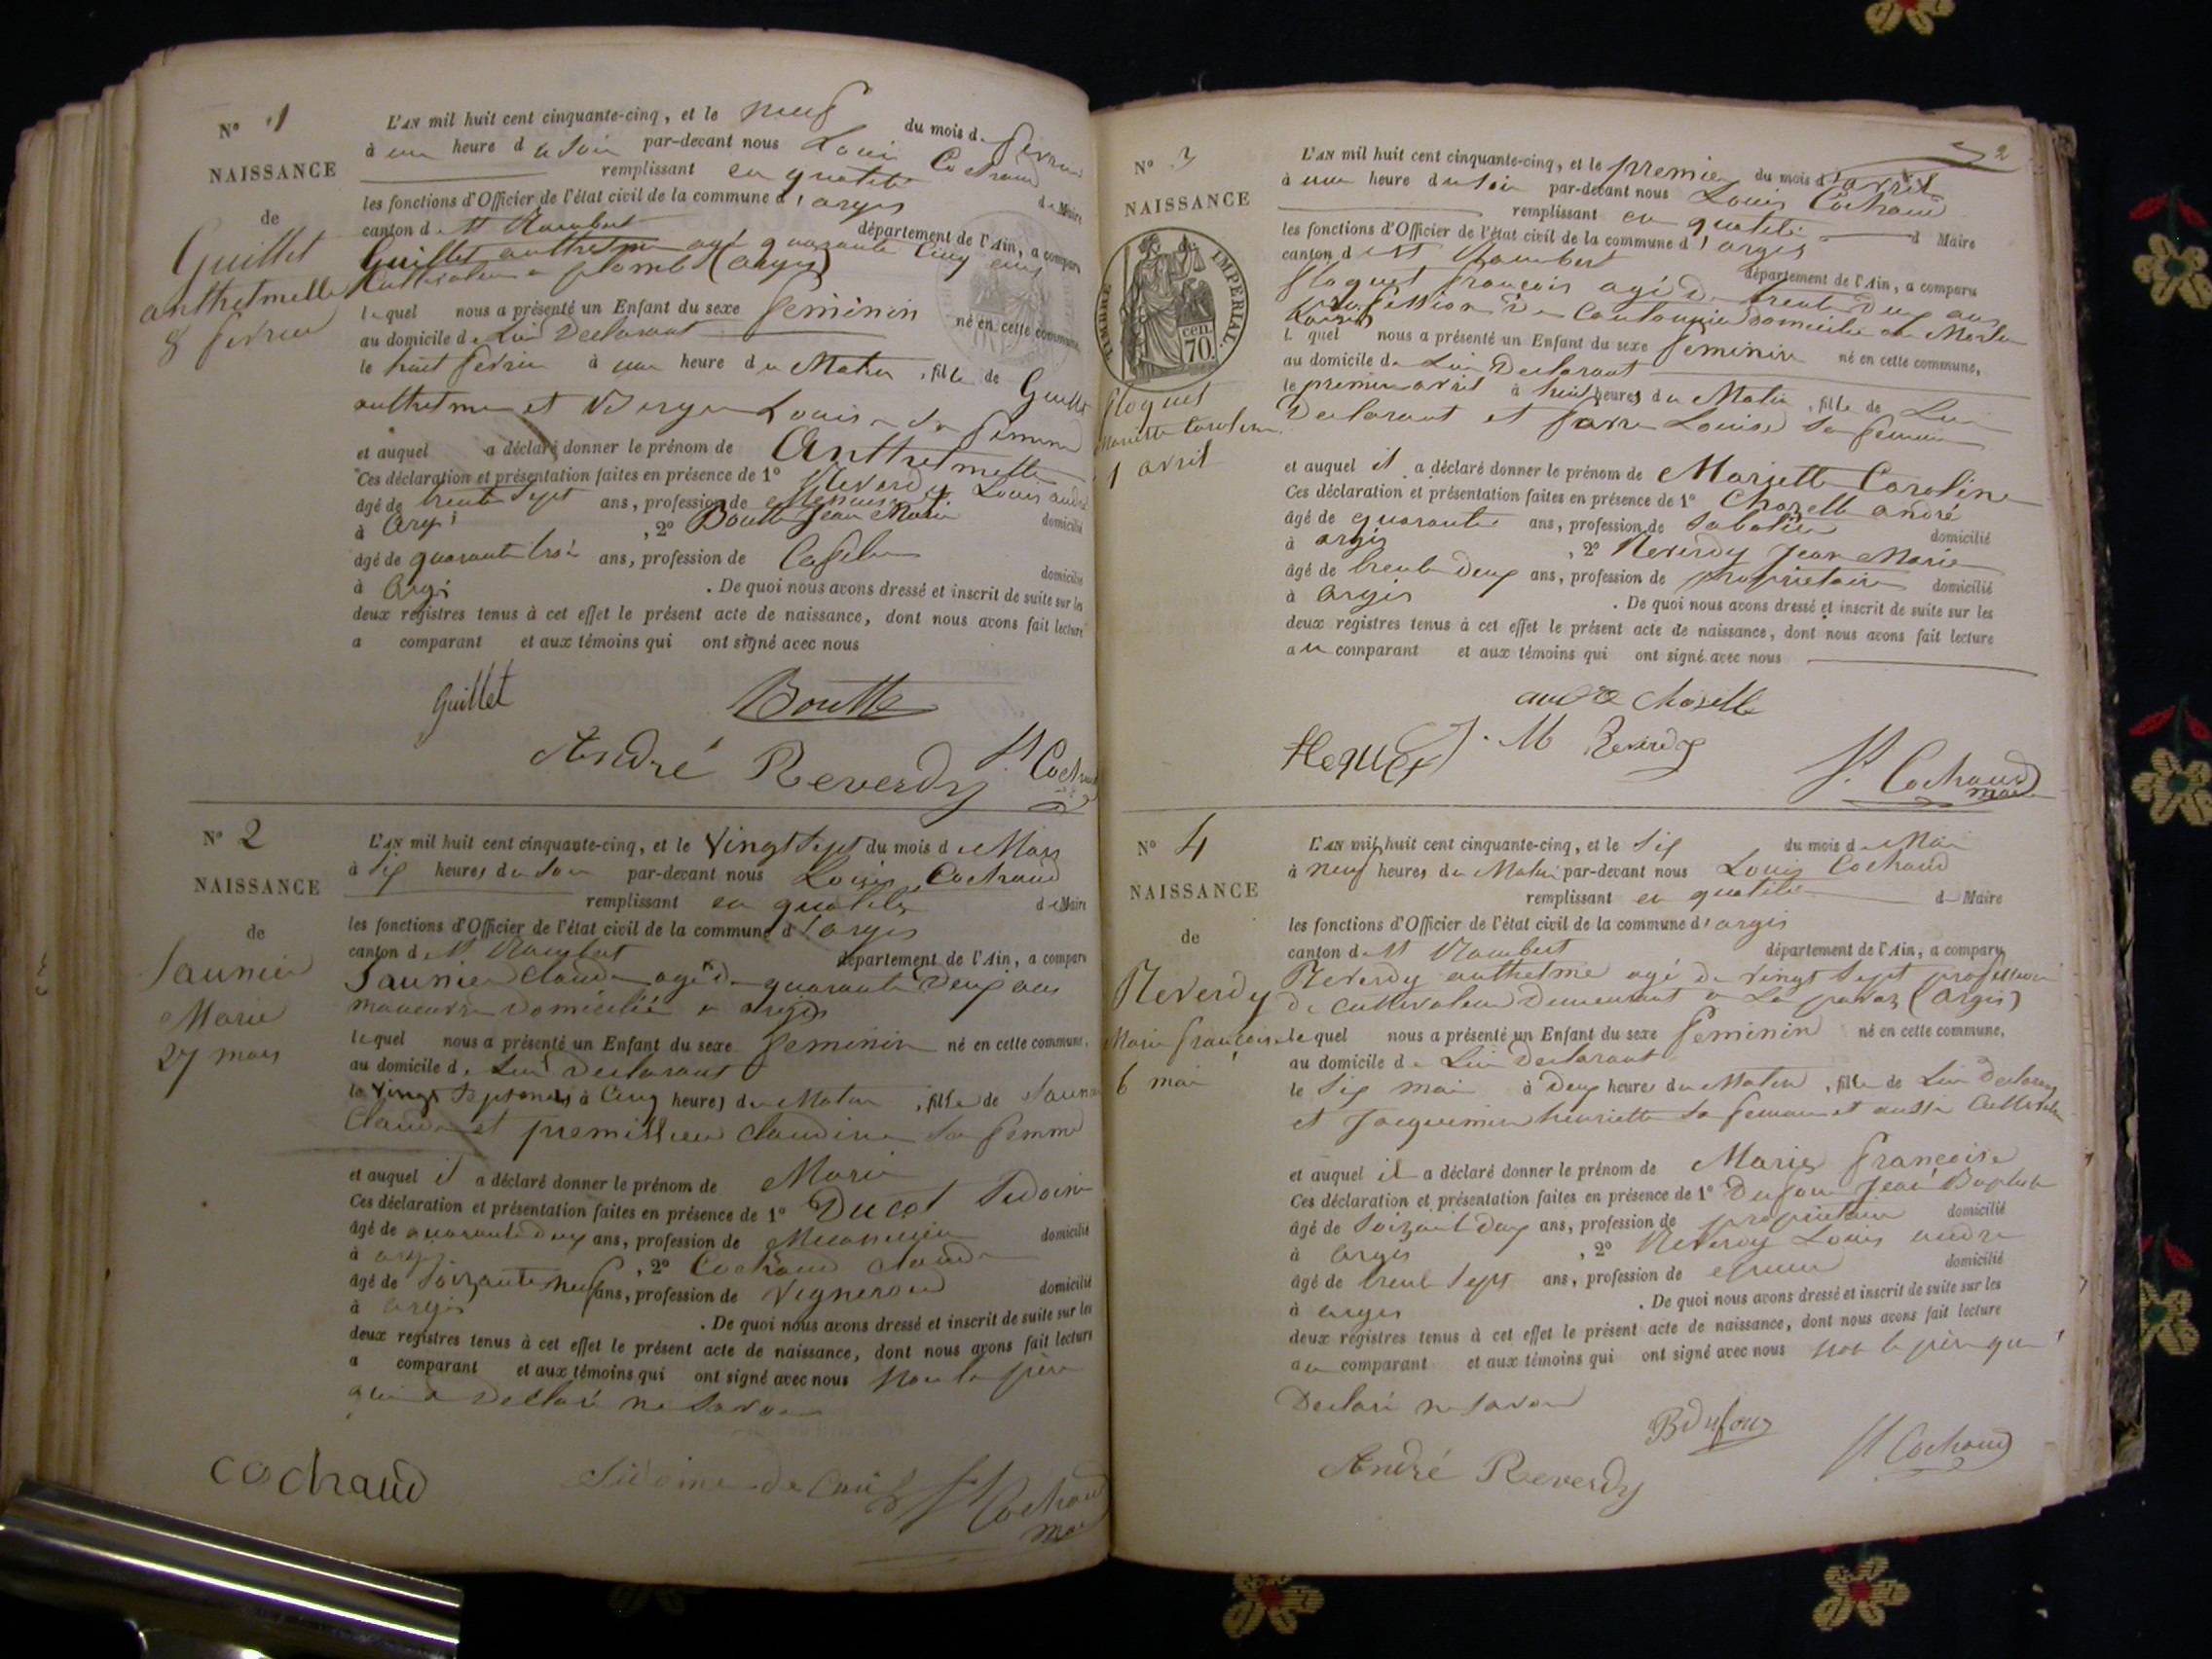 N° 1
NAISSANCE
de
Guillet
anthelmette
8 fevrier
L'AN mil huit cent cinquante-cinq, et le neuf du mois de fevrier
à une heure du soir par-devant nous Louis Cochaud
remplissant en qualité de Maire
les fonctions d'Officier de l'état civil de la commune d'argis
canton de St Rambert département de l'Ain, a comparu
Guillet anthelme agé quarante cinq ans
Cultivateur a plomb (argis)
lequel nous a présenté un Enfant du sexe feminin né en cette commune,
au domicile de Lui Declarant
le huit fevrier à une heure du Matin, fille de Guillet
anthelme et Berger Louise sa femme
et auquel a déclaré donner le prénom de Anthelmette
Ces déclaration et présentation faites en présence de 1° Reverdy Louis andré
âgé de trente sept ans, profession de domicilié
à Argis, 2° Boutte Jean Marie
âgé de quarante trois ans, profession de domicilié
à Argis. De quoi nous avons dressé et inscrit de suite sur les
deux registres tenus à cet effet le présent acte de naissance, dont nous avons fait lecture
a comparant et aux témoins qui ont signé avec nous
Guillet Boutte
André Reverdy Lt Cochaud
N° 2
NAISSANCE
de
Saunier
Marie
27 mars
L'AN mil huit cent cinquante-cinq, et le Vingt Sept du mois de Mars
à Six heures du Soir par-devant nous Louis Cochaud
remplissant en qualité de Maire
les fonctions d'Officier de l'état civil de la commune d'argis
canton de St Rambert département de l'Ain, a comparu
Saunier Claude agé de quarante Deux ans
manœuvre domicilié a argis
lequel nous a présenté un Enfant du sexe feminin né en cette commune,
au domicile de Lui Declarant
le Vingt Sept mars à Cinq heures du Matin, fille de Saunier
Claude et premillieu Claudine sa femme
et auquel il a déclaré donner le prénom de Marie
Ces déclaration et présentation faites en présence de 1° Ducot Sidoine
âgé de quarante deux ans, profession de Mecanicien domicilié
à argis, 2° Cochaud Claude
âgé de Soixante neuf ans, profession de Vigneron domicilié
à argis. De quoi nous avons dressé et inscrit de suite sur les
deux registres tenus à cet effet le présent acte de naissance, dont nous avons fait lecture
a comparant et aux témoins qui ont signé avec nous Non le père
qui a Declaré ne Savoir
cochaud Sidoine Lt Cochaud
maire
2
N° 3
NAISSANCE
TIMBRE IMPERIAL.
cen. 70.
floquet
Mariette Caroline
1 avril
L'AN mil huit cent cinquante-cinq, et le premier du mois d'avril
à une heure du soir par-devant nous Louis Cochaud
remplissant en qualité d Maire
les fonctions d'Officier de l'état civil de la commune d'argis
canton de St Rambert département de l'Ain, a comparu
floquet françois agé de trente deux ans
profession de Cantonnier domicilié au
lequel nous a présenté un Enfant du sexe feminin né en cette commune,
au domicile de Lui Declarant
le premier avril à huit heures du Matin, fille de Lui
Declarant et Louise sa femme
et auquel il a déclaré donner le prénom de Mariette Caroline
Ces déclaration et présentation faites en présence de 1° Chazelle andré
âgé de quarante ans, profession de Sabotier domicilié
à argis, 2° Reverdy Jean Marie
âgé de trente deux ans, profession de propriétaire domicilié
à argis. De quoi nous avons dressé et inscrit de suite sur les
deux registres tenus à cet effet le présent acte de naissance, dont nous avons fait lecture
au comparant et aux témoins qui ont signé avec nous
andre Chazelle
floquet J. M Reverdy Lt Cochaud
maire
N° 4
NAISSANCE
de
Reverdy
Marie françoise
6 mai
L'AN mil huit cent cinquante-cinq, et le Six du mois de Mai
à neuf heures du Matin par-devant nous Louis Cochaud
remplissant en qualité d Maire
les fonctions d'Officier de l'état civil de la commune d'argis
canton de St Rambert département de l'Ain, a comparu
Reverdy anthelme agé de vingt sept profession
de cultivateur Demeurant a (argis)
lequel nous a présenté un Enfant du sexe feminin né en cette commune,
au domicile de Lui Declarant
le Six mai à Deux heures du Matin, fille de Lui declarant
et Jacquemin henriette sa femme et aussi Cultivateur
et auquel il a déclaré donner le prénom de Marie françoise
Ces déclaration et présentation faites en présence de 1° Dufour Jean Baptiste
âgé de Soixante deux ans, profession de propriétaire domicilié
à argis, 2° Reverdy Louis andre
âgé de trente Sept ans, profession de domicilié
à argis. De quoi nous avons dressé et inscrit de suite sur les
deux registres tenus à cet effet le présent acte de naissance, dont nous avons fait lecture
au comparant et aux témoins qui ont signé avec nous non le père qui a
Declaré ne Savoir
B Dufour
André Reverdy Lt Cochaud